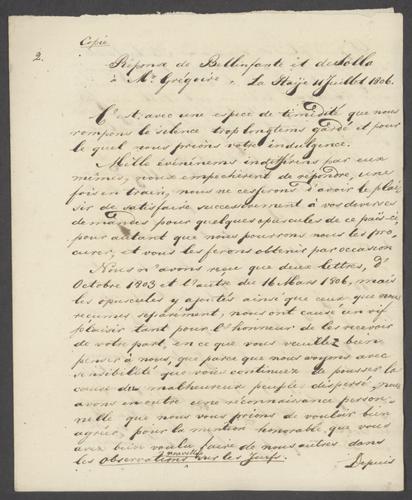 Copie
2.
Reponse de Bellinfante et de Solla
à Mr. Grégoire. La Haije 11 Juillet 1806.
C'est, avec une espece de timédité que nous
rompons le silence trop longtems gardé et pour
le quel nous prions votre indulgence.
Mille événémens indifférens par eux
mêmes, nous empechèrent de répondre, une
fois en train, nous ne cesserons d'avoir le plai-
sir de satisfaire successivement à vos diverses
demandes pour quelques opuscules de ce pais-ci,
pour autant que nous pourrons nous les pro-
curer, et vous les ferons obtenir par occasion
Nous n'avons reçu que deux lettres, d'
Octobre 1803 et l'autre du 16 Mars 1806, mais
les opuscules y ajoutés ainsi que ceux que nous
recumes séparément, nous ont causé un vif
plaisir tant pour l'honneur de les recevoir
de votre part, en ce que vous veuillez bien
penser à nous, que parce que nous voyons avec
sensibilité que vous continuez de pousser la
cause du malheureux peuple dispersé, nous
avons en outre une réconnaissance person-
nelle que nous vous prions de vouloir bien
agréer, pour la mention honorable que vous
avez bien voulu faire de nous autres dans
les Observations nouvelles sur les Juifs.
Depuis